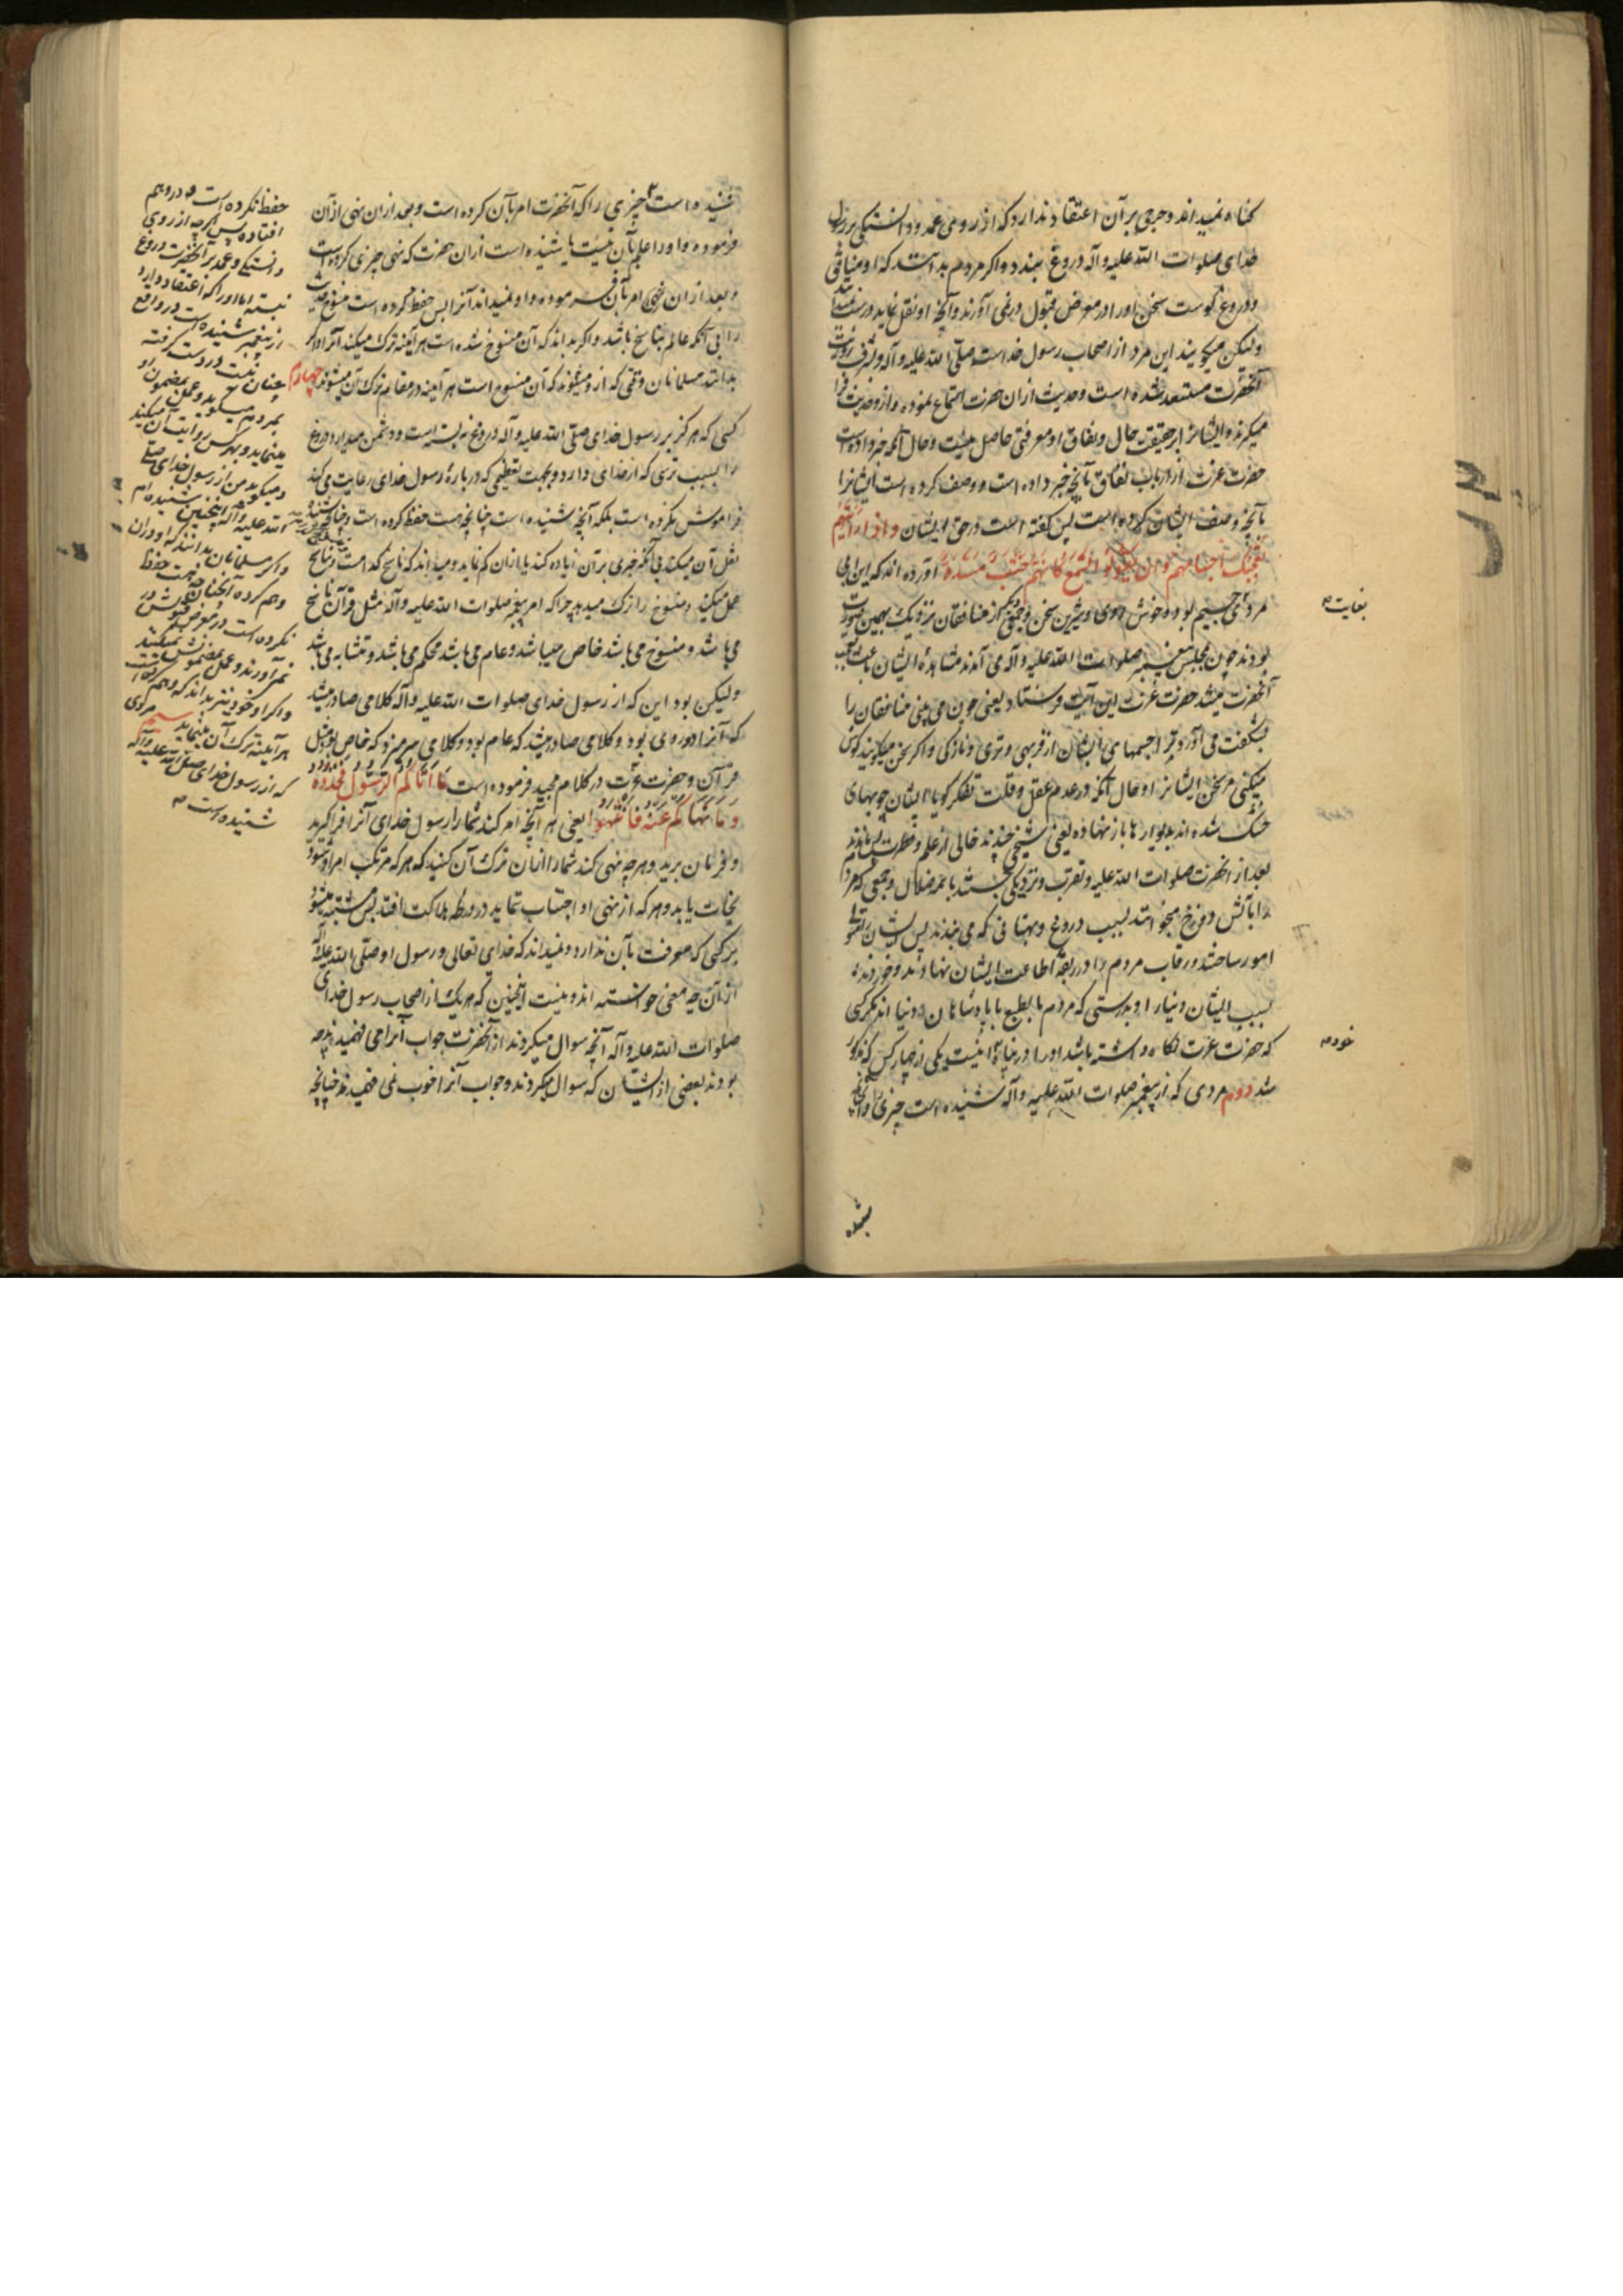 کناه نمیداند و حرجی بر آن اعتقاد ندارد که از روی عمد و دانستکی بر رسول
خدای صلوات الله علیه و آله دروغ ببندد و اکر مردم بدانند که او منافق
و دروغ کوست سخن او را در معرض قبول در نمی آورند و آنچه او نقل نماید
ولیکن میکویند این مرد از اصحاب رسول خداست صلی الله علیه و آله و بشرف رؤیت
آنحضرت مستسعد شده است و حدیث از آن حضرت استماع نموده و از و حدیث فرا
میکیرند و ایشانرا بر حقیقت حال و نفاق او معرفتی حاصل نیست و حال آنکه خبر داده است
حضرت عزت از ارباب نفاق بآنچه خبر داده است و وصف کرده است ایشانرا
بآنچه وصف ایشان کرده است پس کفته است در حق ایشان و اذا رایتهم
تعجبک اجسامهم و ان یقولوا تسمع کانهم خشب مسندة آورده اند که ابن ابی
مردی جسیم بود و خوش روی و شیرین سخن و جمعی دیکر از منافقان نزدیک بهمین صورت
بودند چون بمجلس پیغمبر صلوات الله علیه و آله می آمدند مشاهده ایشان باعث تعجب
آنحضرت میشد حضرت عزت این آیت فرستاد یعنی چون می بینی منافقان را
بشکفت می آورد ترا جسمهای ایشان از فربهی و تری و تازکی و اکر سخن میکویند کوش
میکنی مر سخن ایشانرا و حال آنکه در عدم عقل و قلت تفکر کویا ایشان چوبهای
خشک شده اند بدیوارها باز نهاده یعنی شخصی چندند خالی از علم و معرفت پس ماندند
بعد از آنحضرت صلوات الله علیه و تقرب و نزدیکی جستند بائمه ضلال و جمعی که مردم
را بآتش دوزخ میخوانند بسبب دروغ و بهتانی که می بندند پس ایشان را متولی
امور ساختند و رقاب مردم را در ربقه اطاعت ایشان نهادند و خوردند
بسبب ایشان دنیا را و بدرستی که مردم بالطبع با پادشاهان و دنیا اند مکر کسی
که حضرت عزت نکاه داشته باشد او را در پناه اینست یکی از چهار کس که مذکور
شد دوم مردی که از پیغمبر صلوات الله علیه و آله شنیده است چیزی را و آنچه
شنیده
بغایت
خود
شنیده است چیزی را که آنحضرت امر بآن کرده است و بعد از آن نهی از آن
فرموده و او را علم بآن نیست یا شنیده است از آن حضرت که نهی چیزی کرده است
و بعد از آن نهی امر بآن فرموده و او نمیداند آنرا پس حفظ کرده است منسوخ
را بی آنکه عالم بناسخ باشد و اکر بداند که آن منسوخ شده است هر آینه ترک میکند آنرا و اکر
بدانند مسلمانان وقتی که از و میشنوند که آن منسوخ است هر آینه در مقام ترک آن میشوند چهارم
کسی که هرکز بر رسول خدای صلی الله علیه و آله دروغ نه بسته است و دشمن میدارد دروغ
را بسبب ترسی که از خدای دارد و بجهت تعظیمی که درباره رسول خدای رعایت می کند
فراموش نکرده است بلکه آنچه شنیده است چنانچه هست حفظ کرده است و چنانکه شنیده
نقل آن میکند بی آنکه چیزی بر آن زیاده کند یا از آن کم نماید و میداند که ناسخ کدامست و بناسخ
عمل میکند و منسوخ را ترک میدهد چرا که امر پیغمبر صلوات الله علیه و آله مثل قرآن ناسخ
می باشد و منسوخ می باشد خاص میباشد و عام می باشد محکم می باشد و متشابه می باشد
ولیکن بود این که از رسول خدای صلوات الله علیه و آله کلامی صادر میشد
که آنرا دو روی بود و کلامی صادر میشد که عام بود و کلامی سر میزد که خاص بود مثل
قرآن و حضرت عزت در کلام مجید فرموده است ما آتاکم الرسول فخذوه
و ما نهاکم عنه فانتهوا یعنی هر آنچه امر کند شما را رسول خدای آنرا فرا کیرید
و فرمان برید و هر چه نهی کند شما را از آن ترک آن کنید که هر که مرتکب امر او شود
نجات یابد و هر که از نهی او اجتناب نماید در ورطه هلاکت افتد پس مشتبه میشود
بر کسی که معرفت بآن ندارد و نمیداند که خدای تعالی و رسول او صلی الله علیه و آله
از آن چه معنی خواسته اند و نیست اینچنین که هر یک از اصحاب رسول خدای
صلوات الله علیه و آله آنچه سوال میکردند از آنحضرت جواب آنرا می فهمیدند چه
بودند بعضی از ایشان که سوال میکردند و جواب آنرا خوب نمی فهمیدند چنانچه
حفظ نکرده است و در وهم
افتاده پس اکرچه از روی
دانستکی و عمد بر آنحضرت دروغ
نبسته اما او را که اعتقاد دارد
از پیغمبر شنیده است در واقع
چنان نیست در دست کرفته
بمردم میکوید و عمل بمضمون او
مینماید و بهرکس روایت آن میکند
و میکوید من از رسول خدای صلی
الله علیه و آله اینچنین شنیده ام
و اکر مسلمانان بدانند که او در آن
وهم کرده آنچنان چه هست حفظ
نکرده است در معرض قبولش در
نمی آورند و عمل بمضمونش نمیکنند
و اکر او خود نیز بداند که وهم کرده است
هر آینه ترک آن مینماید سیم مردی
که از رسول خدای صلی الله علیه و آله
شنیده است